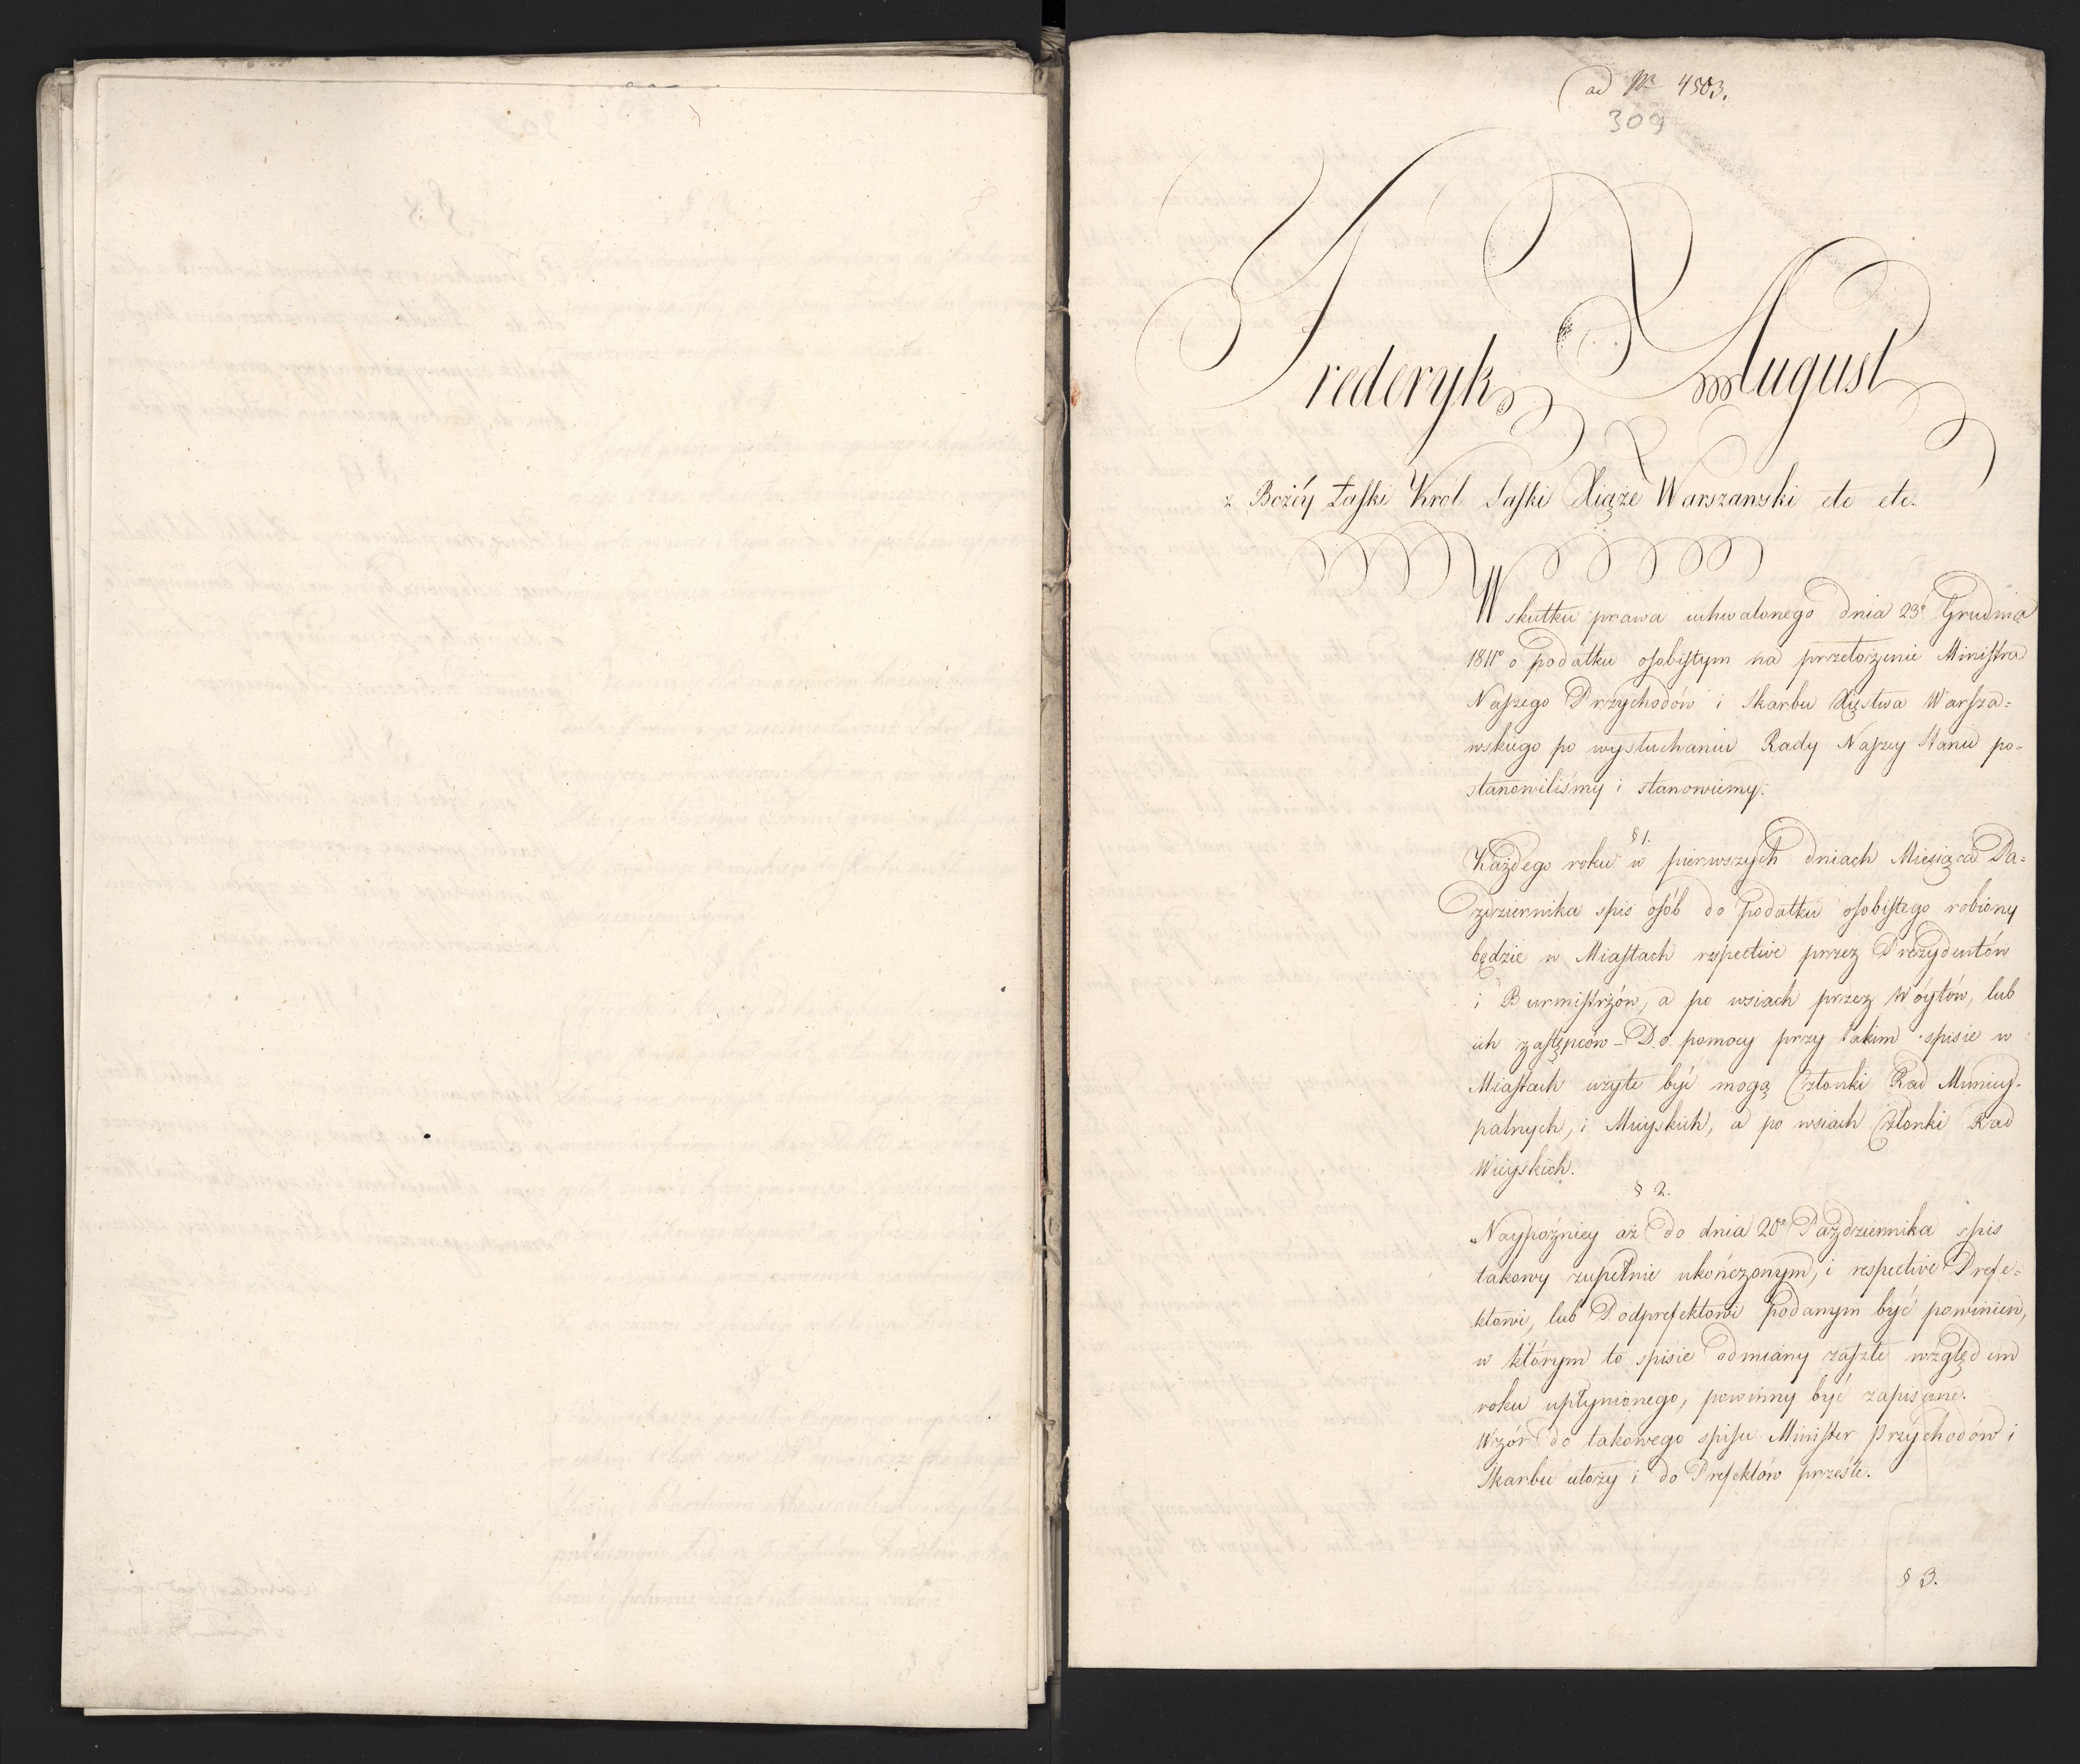 ad Nr 4503.
309
Frederyk August
z Bożéy Łaſki Król Saſki Xiąże Warszawski etc etc.
W skutku prawa uchwalonego dnia 23º Grudnia
1811º o podatku oſobiſtym na przełożenie Miniſtra
Naſzego Przychodów i Skarbu Xięstwa Warſza=
wskiego po wysłuchaniu Rady Naſzey Stanu po=
stanowiliśmy i stanowiemy:
§ 1.
Każdego roku w pierwszych dniach Miesiąca Pa=
ździernika spis oſób do podatku oſobiſtego robiony
będzie w Miaſtach respective przez Prezydentów
i Burmiſtrzów, a po wsiach przez Wóytów, lub
ich zaſtępców – Do pomocy przy takim spisie w
Miaſtach użyte być mogą Członki Rad Municy-
palnych, i Mieyskich, a po wsiach Członki Rad
Wieyskich.
§ 2.
Naypóźniey aż do dnia 20º Października spis
takowy zupełnie ukończonym, i respective Prefe=
ktowi, lub Podprefektowi podanym być powinien,
w którym to spisie odmiany zaſzłe względem
roku upłynionego, powinny być zapisane.
Wzór do takowego spisu Miniſter Przychodów i
Skarbu ułoży i do Prefektów prześle.
§ 3.